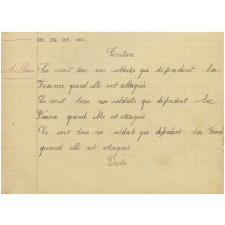 Ecriture
Ce sont tous nos soldats qui défendent la
France quand elle est attaquée
Ce sont tous nos soldats qui défendent la
France quand elle est attaquée
Ce sont tous nos soldats qui défendent la France
quand elle est attaquée